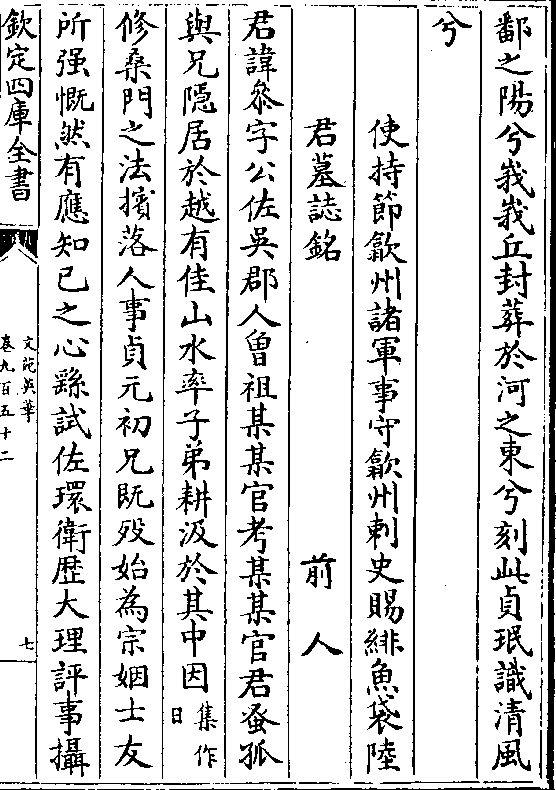 鄱之陽兮峩峩丘封葬於河之東兮刻此貞珉識清風
兮
使持節歙州諸軍事守歙州刺史賜緋魚袋陸
君墓誌銘 前人
君諱叅字公佐吳郡人曾祖某某官考某某官君蚤孤
與兄隠居於越有佳山水率子弟耕汲於其中因集作日
修桑門之法擯落人事貞元初兄既殁始為宗姻士友
所强慨然有應知已之心繇試佐環衛歴大理評事攝
欽定四庫全書
文苑英華
卷九百五十二
七